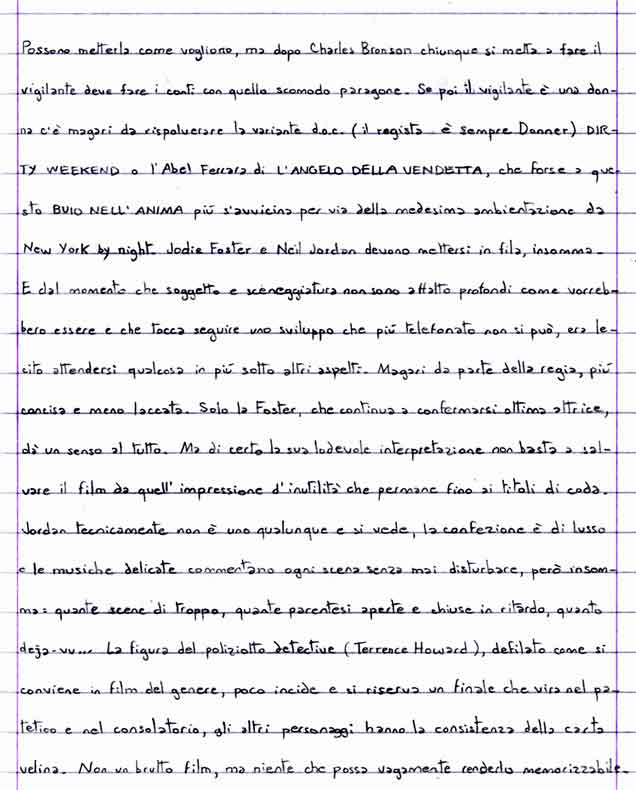 Possono metterla come vogliono, ma dopo Charles Bronson chiunque si metta a fare il
vigilante deve fare i conti con quello scomodo paragone. Se poi il vigilante è una don-
na c'è magari da rispolverare la variante d.o.c. (il regista è sempre Donner) DIR-
TY WEEKEND o l'Abel Ferrara di L'ANGELO DELLA VENDETTA, che forse a que-
sto BUIO NELL'ANIMA più s'avvicina per via della medesima ambientazione da
New York by night. Jodie Foster e Neil Jordan devono mettersi in fila, insomma.
E dal momento che soggetto e sceneggiatura non sono affatto profondi come vorreb-
bero essere e che tocca seguire uno sviluppo che più telefonato non si può, era le-
cito attendersi qualcosa in più sotto altri aspetti. Magari da parte della regia, più
concisa e meno laccata. Solo la Foster, che continua a confermarsi ottima attrice,
dà un senso al tutto. Ma di certo la sua lodevole interpretazione non basta a sal-
vare il film da quell'impressione d'inutilità che permane fino ai titoli di coda.
Jordan tecnicamente non è uno qualunque e si vede, la confezione è di lusso
e le musiche delicate commentano ogni scena senza mai disturbare, però insom-
ma: quante scene di troppo, quante parentesi aperte e chiuse in ritardo, quanto
deja-vu... La figura del poliziotto detective (Terrence Howard), defilato come si
conviene in film del genere, poco incide e si riserva un finale che vira nel pa-
tetico e nel consolatorio, gli altri personaggi hanno la consistenza della carta
velina. Non un brutto film, ma niente che possa vagamente renderlo memorizzabile.